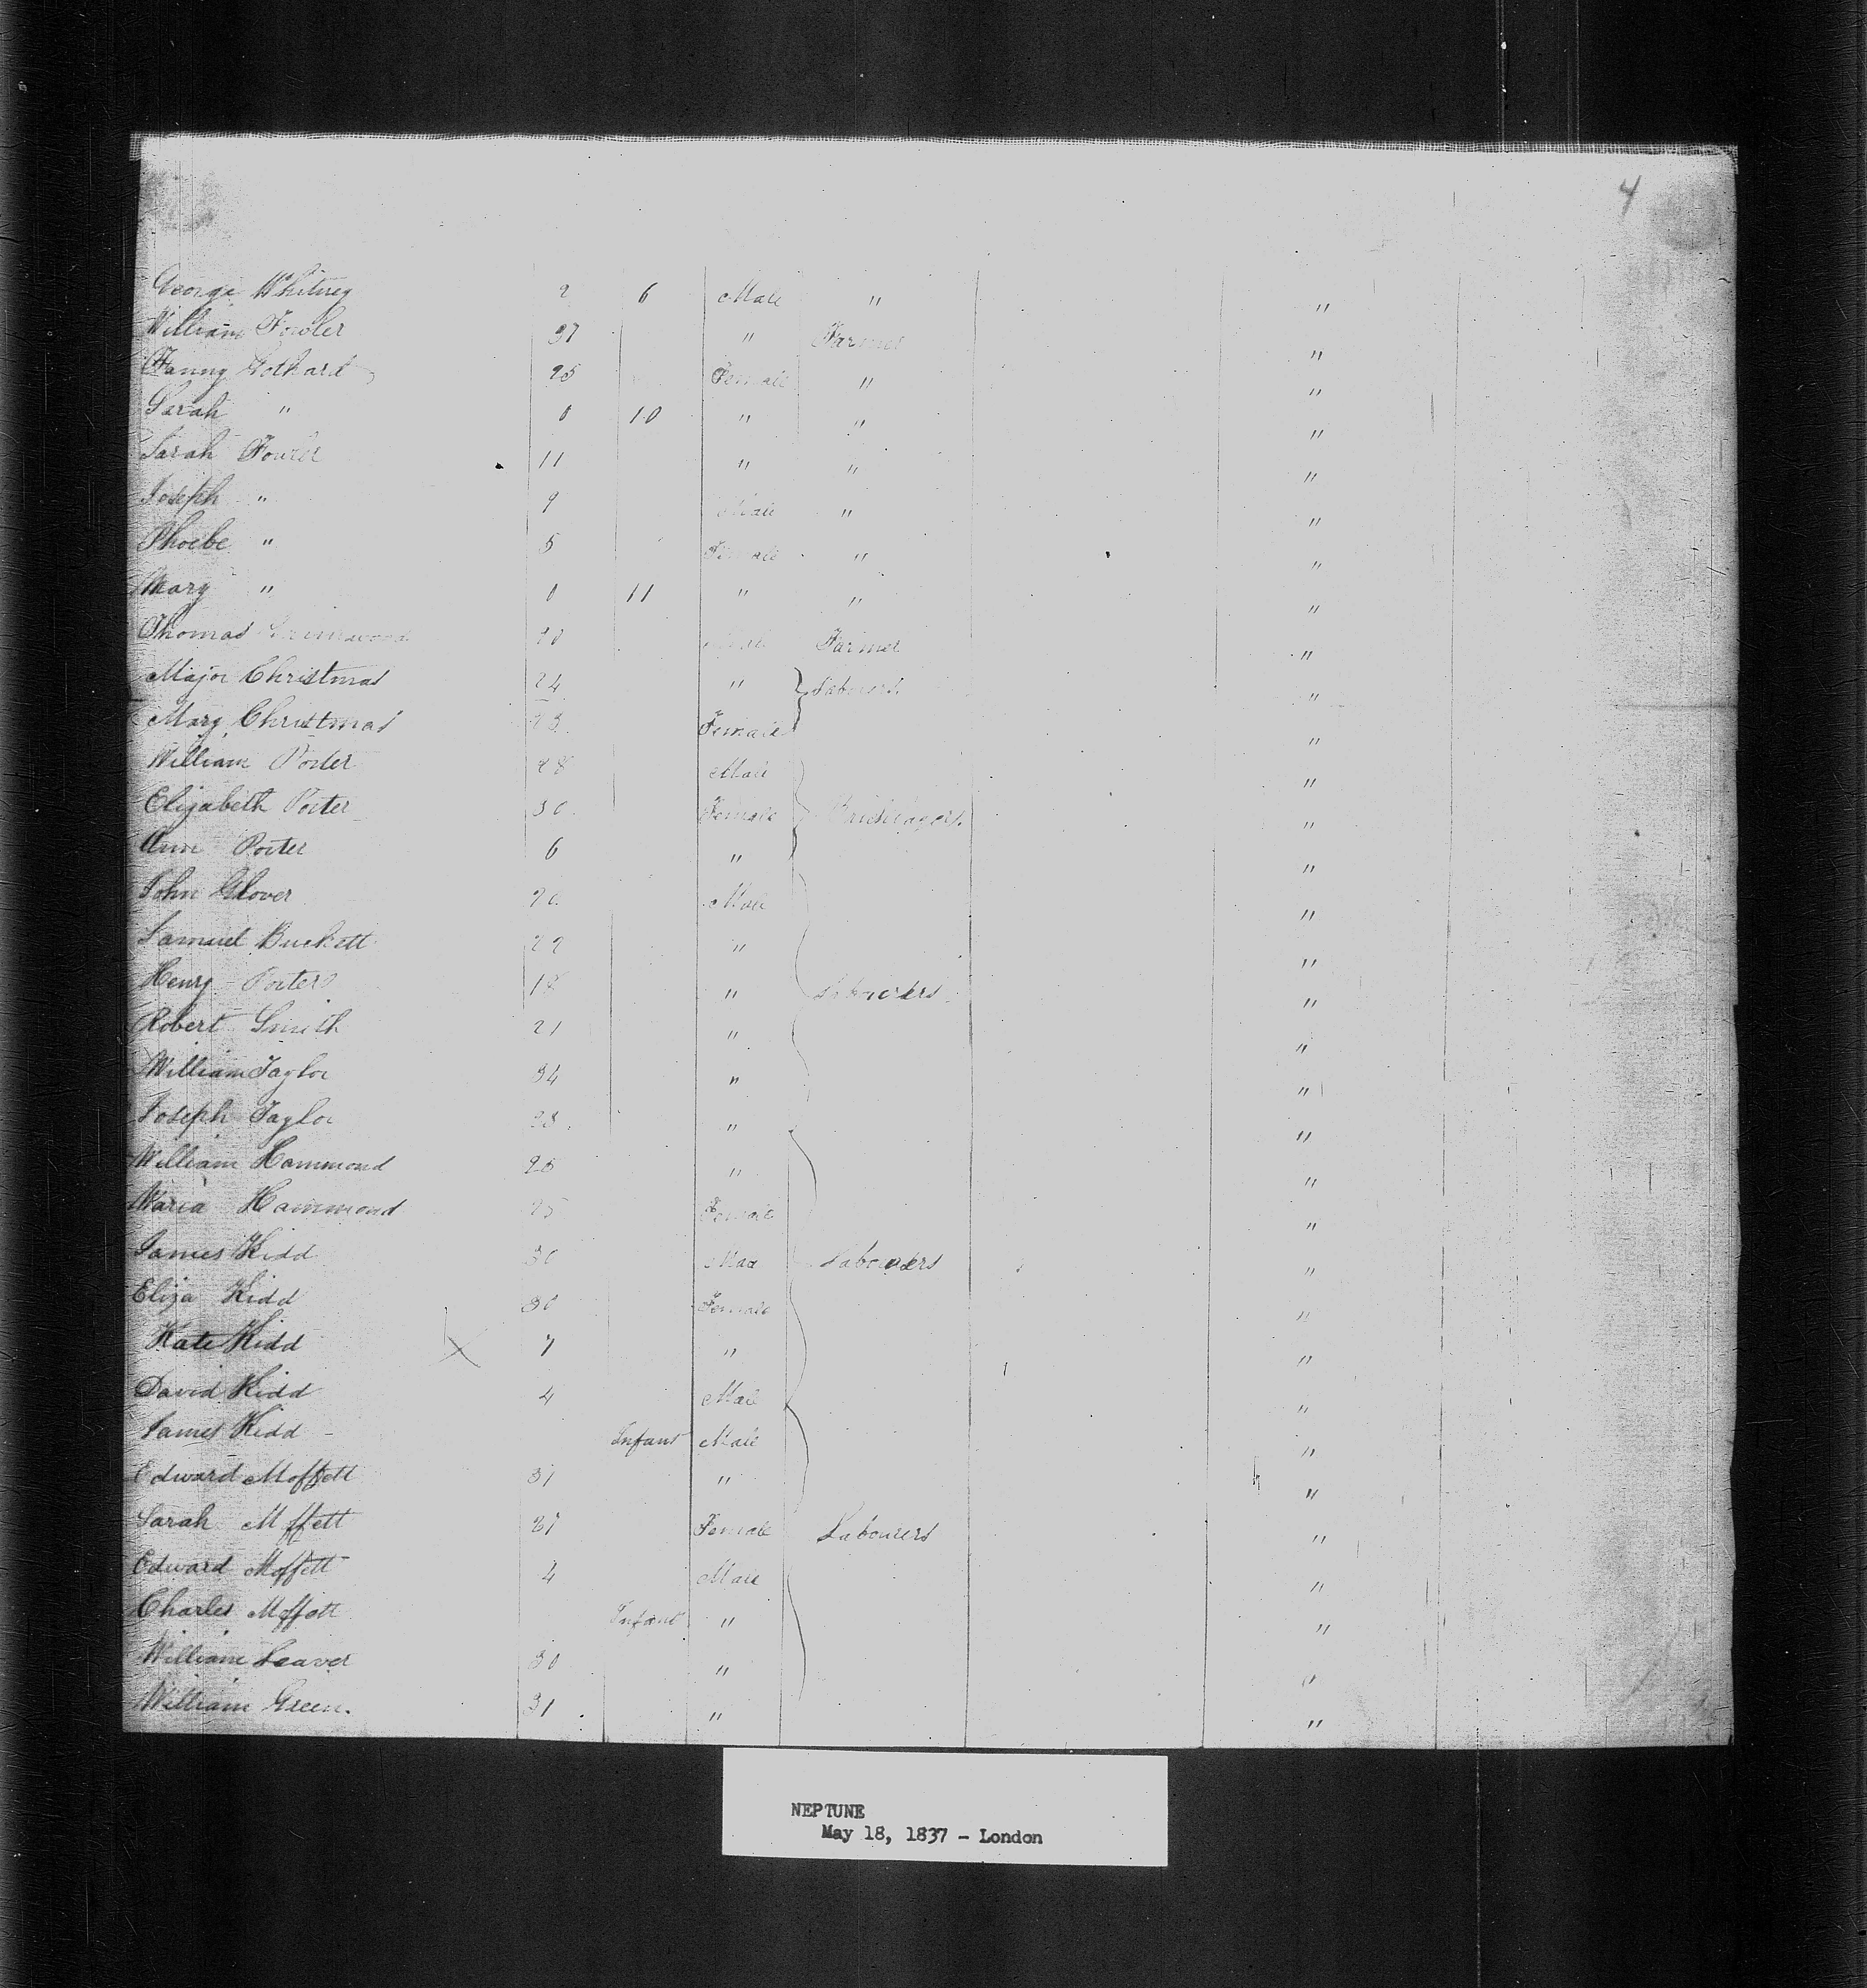 4
George Whitney 2 6 Male "  "
William Fowler 37 " Farmer "
Fanny Gothard 25 Female " "
Sarah " 0 10 " " "
Sarah Fowler 11 " " "
Joseph " 9 Male " "
Phoebe " 5 Female " "
Mary " 0 11 " " "
Thomas 20 Male Farmer "
Major Christmas 24 " Labourers "
Mary Christmas 23 Female "
William Porter 28 Male "
Elizabeth Porter 30 Female Bricklayers "
Ann Porter 6 " "
John Glover 20 Male "
Samuel Buckett 22 " "
Henry Porter 18 " Labourers "
Robert Smith 21 " "
William Taylor 34 " "
Joseph Taylor 28 " "
William Hammond 25 " "
Maria Hammond 25 Female "
James Kidd 30 Male Labourers "
Eliza Kidd 30 Female "
Kate Kidd 7 " "
David Kidd 4 Male "
James Kidd Infant Male "
Edward Moffett 31 " "
Sarah Moffett 27 Female Labourers "
Edward Moffett 4 Male "
Charles Moffett Infant " "
William Leaver 30 " "
William Green. 31 " "
NEPTUNE
May 18, 1837 - London